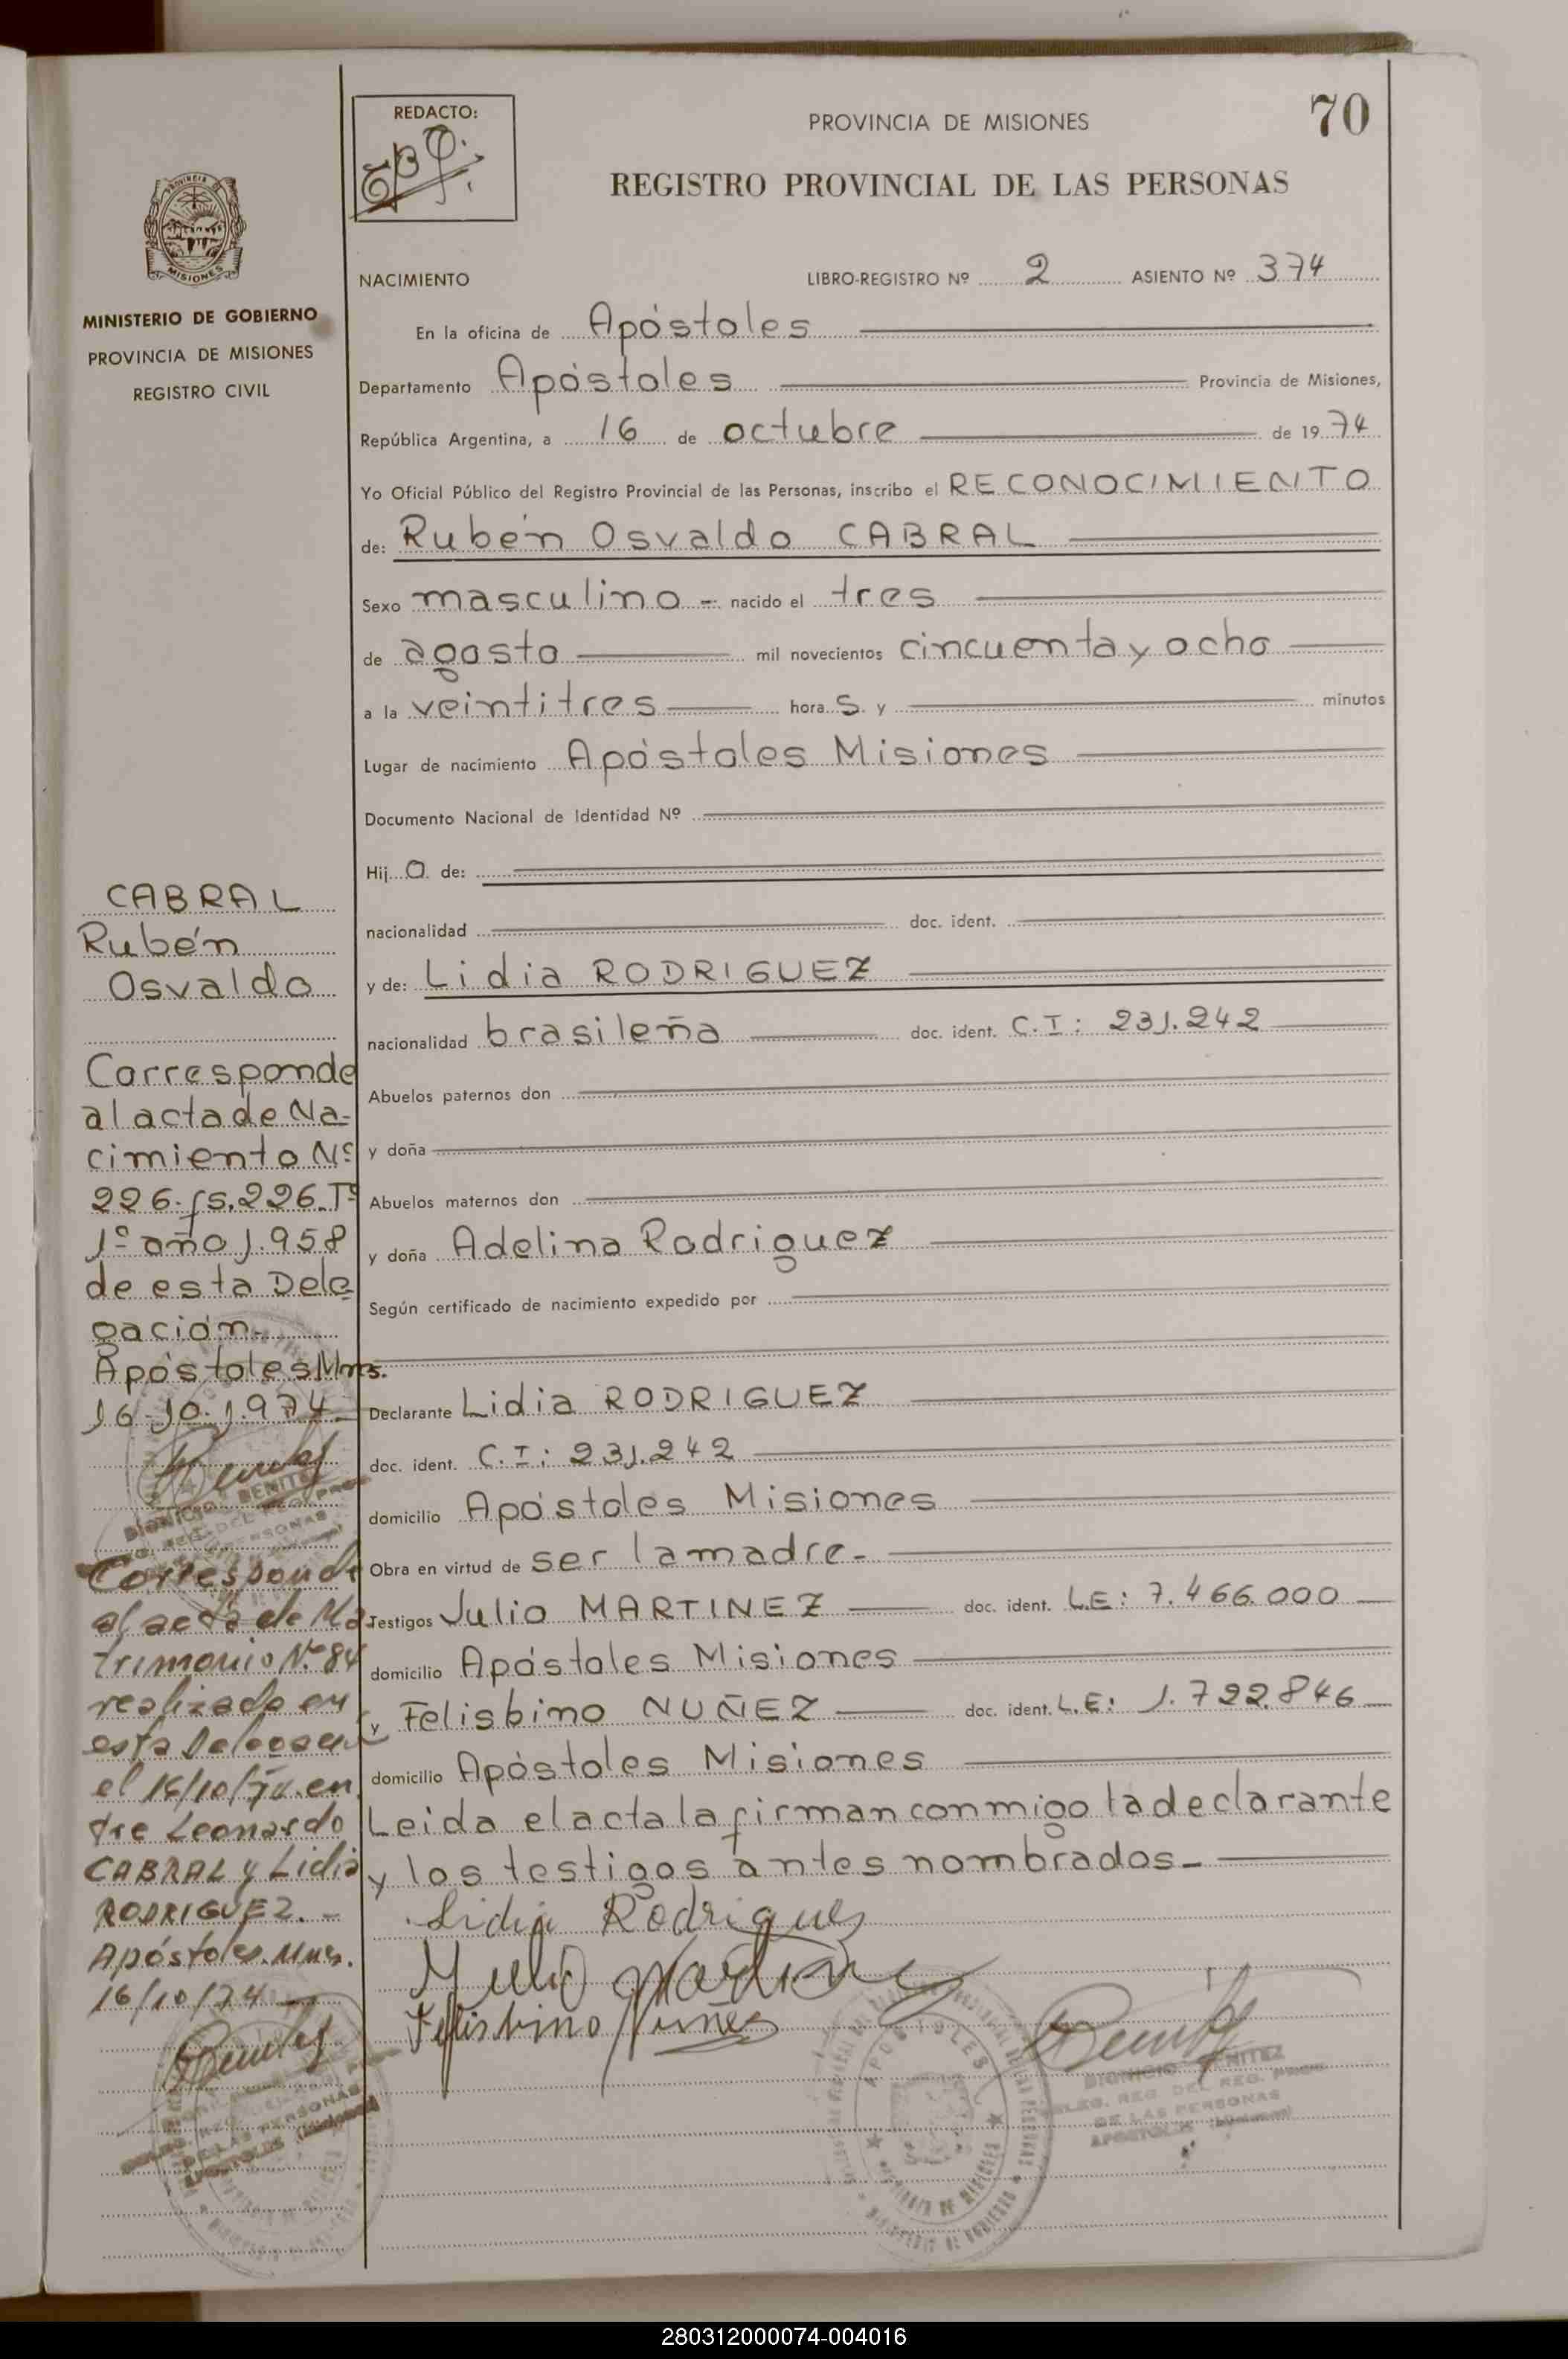 70
REDACTO:
PROVINCIA DE MISIONES
REGISTRO PROVINCIAL DE LAS PERSONAS
MISIONES
MINISTERIO DE GOBIERNO
PROVINCIA DE MISIONES
REGISTRO CIVIL
CABRAL
Rubén
Osvaldo
Corresponde
al acta de Na-
cimiento Nº
226. fs. 226. Tº
1º año 1.958
de esta Dele
gación.
Apóstoles Mnes.
16.10.1.974
Corresponde
al acta de Ma
trimonio Nº 84
realizado en
esta
el 16/10/74. en
tre Leonardo
CABRAL y Lidia
RODRIGUEZ. -
Apóstoles. Mnes.
16/10/74
NACIMIENTO LIBRO-REGISTRO Nº 2 ASIENTO Nº 374
En la oficina de Apóstoles
Departamento Apóstoles Provincia de Misiones,
República Argentina, a 16 de octubre de 1974
Yo Oficial Público del Registro Provincial de las Personas, inscribo el RECONOCIMIENTO
de: Rubén Osvaldo CABRAL
Sexo masculino - nacido el tres
de agosto mil novecientos cincuenta y ocho
a la veintitres hora s y minutos
Lugar de nacimiento Apóstoles Misiones
Documento Nacional de Identidad Nº
Hij o de:
nacionalidad doc. ident.
y de: Lidia RODRIGUEZ
nacionalidad brasileña doc. ident. C.I: 231.242
Abuelos paternos don
y doña
Abuelos maternos don
y doña Adelina Rodriguez
Según certificado de nacimiento expedido por
Declarante Lidia RODRIGUEZ
doc. ident. C.I: 231.242
domicilio Apóstoles Misiones
Obra en virtud de ser la madre-
Testigos Julio MARTINEZ doc. ident. L.E: 7.466.000
domicilio Apóstoles Misiones
y Felisbino NUÑEZ doc. ident. L.E: 1.722.846
domicilio Apóstoles Misiones
Leida el acta la firman conmigo la declarante
y los testigos antes nombrados-
Lidia Rodrigues
Julio Martinez
Felisbino Nuñes
APOSTOLES
DIONICIO BENITEZ
DELEG. REG. DEL REG. PROV.
DE LAS PERSONAS
APOSTOLES (Misiones)
280312000074-004016